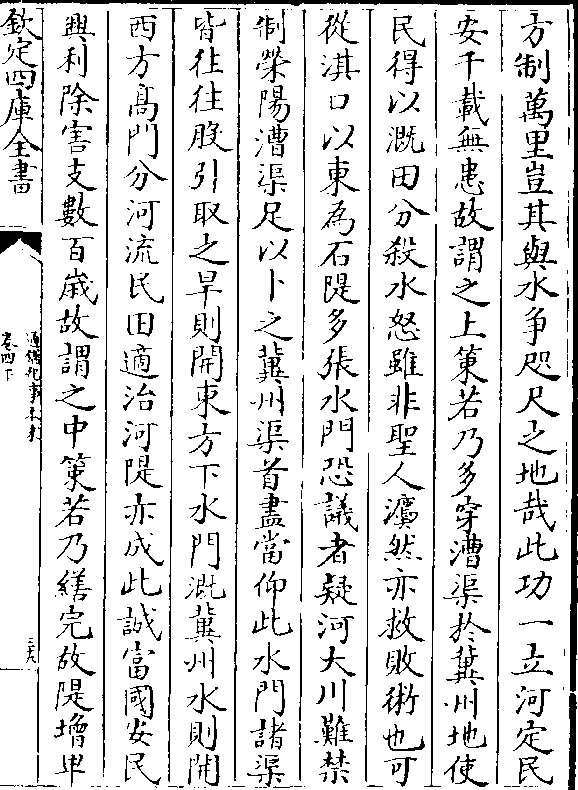 方制萬里豈其與水爭咫尺之地哉此功一立河定民
安千載無患故謂之上策若乃多穿漕渠於冀州地使
民得以溉田分殺水怒雖非聖人灋然亦救敗術也可
從淇口以東為石隄多張水門恐議者疑河大川難禁
制滎陽漕渠足以卜之冀州渠首盡當仰此水門諸渠
皆往往股引取之旱則開東方下水門溉冀州水則開
西方髙門分河流民田適治河隄亦成此誠富國安民
興利除害支數百嵗故謂之中策若乃繕完故隄增卑
欽定四庫全書
通鑑紀事本末
卷四下
三十八